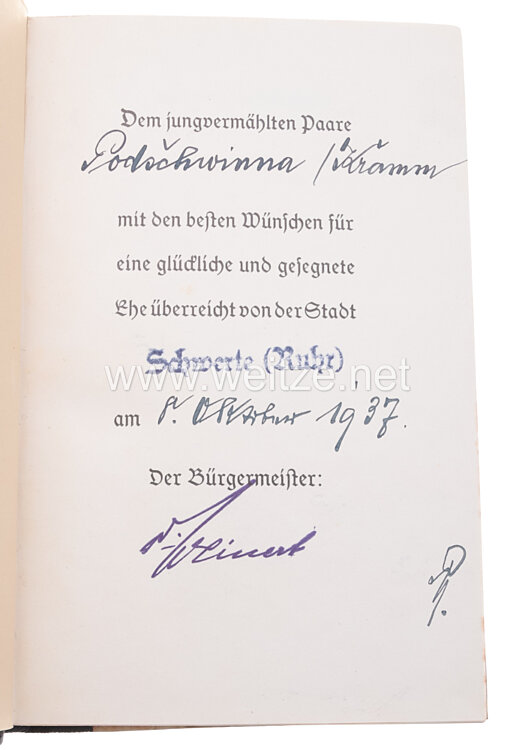 Dem jungvermählten Paare
Podschwinna / Krämm
mit den besten Wünschen für
eine glückliche und gesegnete
Ehe überreicht von der Stadt
Schwerte (Ruhr)
www.weitze.net
am 8. Oktober 1937.
Der Bürgermeister: